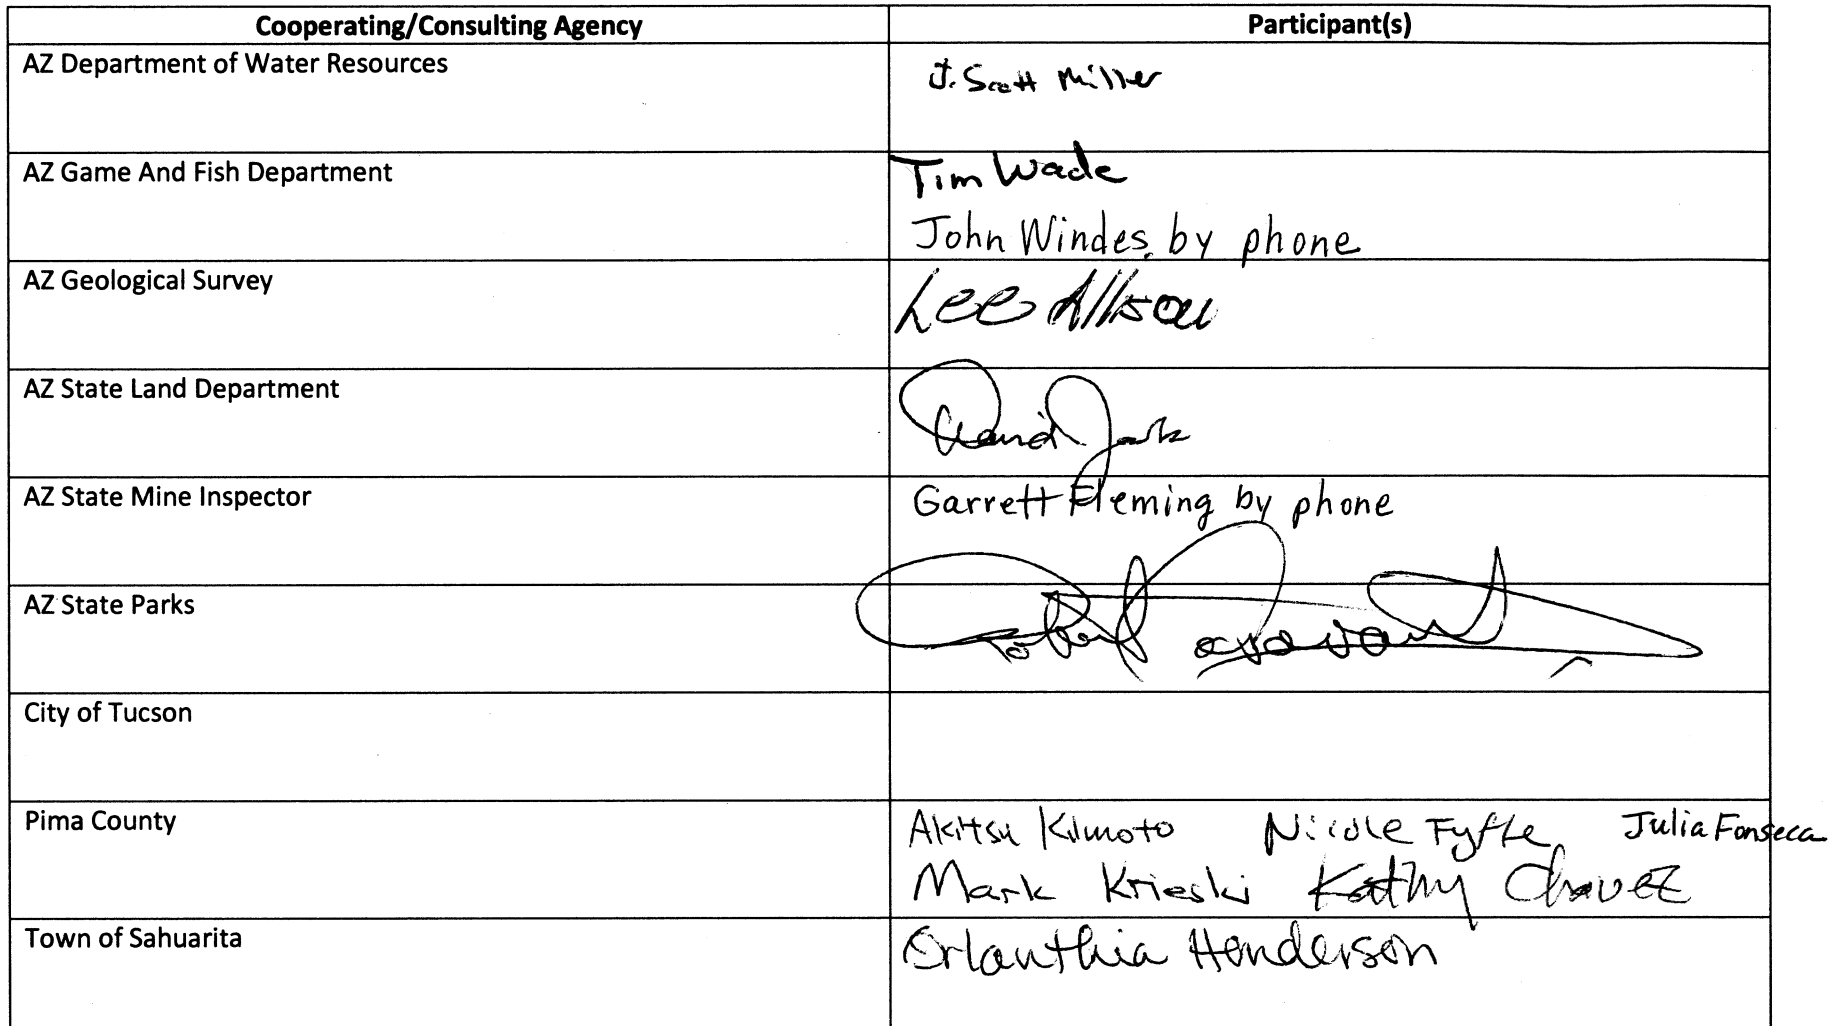 Cooperating/Consulting Agency Participant(s)
AZ Department of Water Resources J. Scott Miller
AZ Game And Fish Department Tim Wade
John Windes by phone
AZ Geological Survey Lee Allison
AZ State Land Department David
AZ State Mine Inspector Garrett Fleming by phone
AZ State Parks Robert
City of Tucson
Pima County Akitsu Kimoto Nicole Fyffe Julia Fonseca
Mark Krieski Kathy Chavez
Town of Sahuarita Orlanthia Henderson